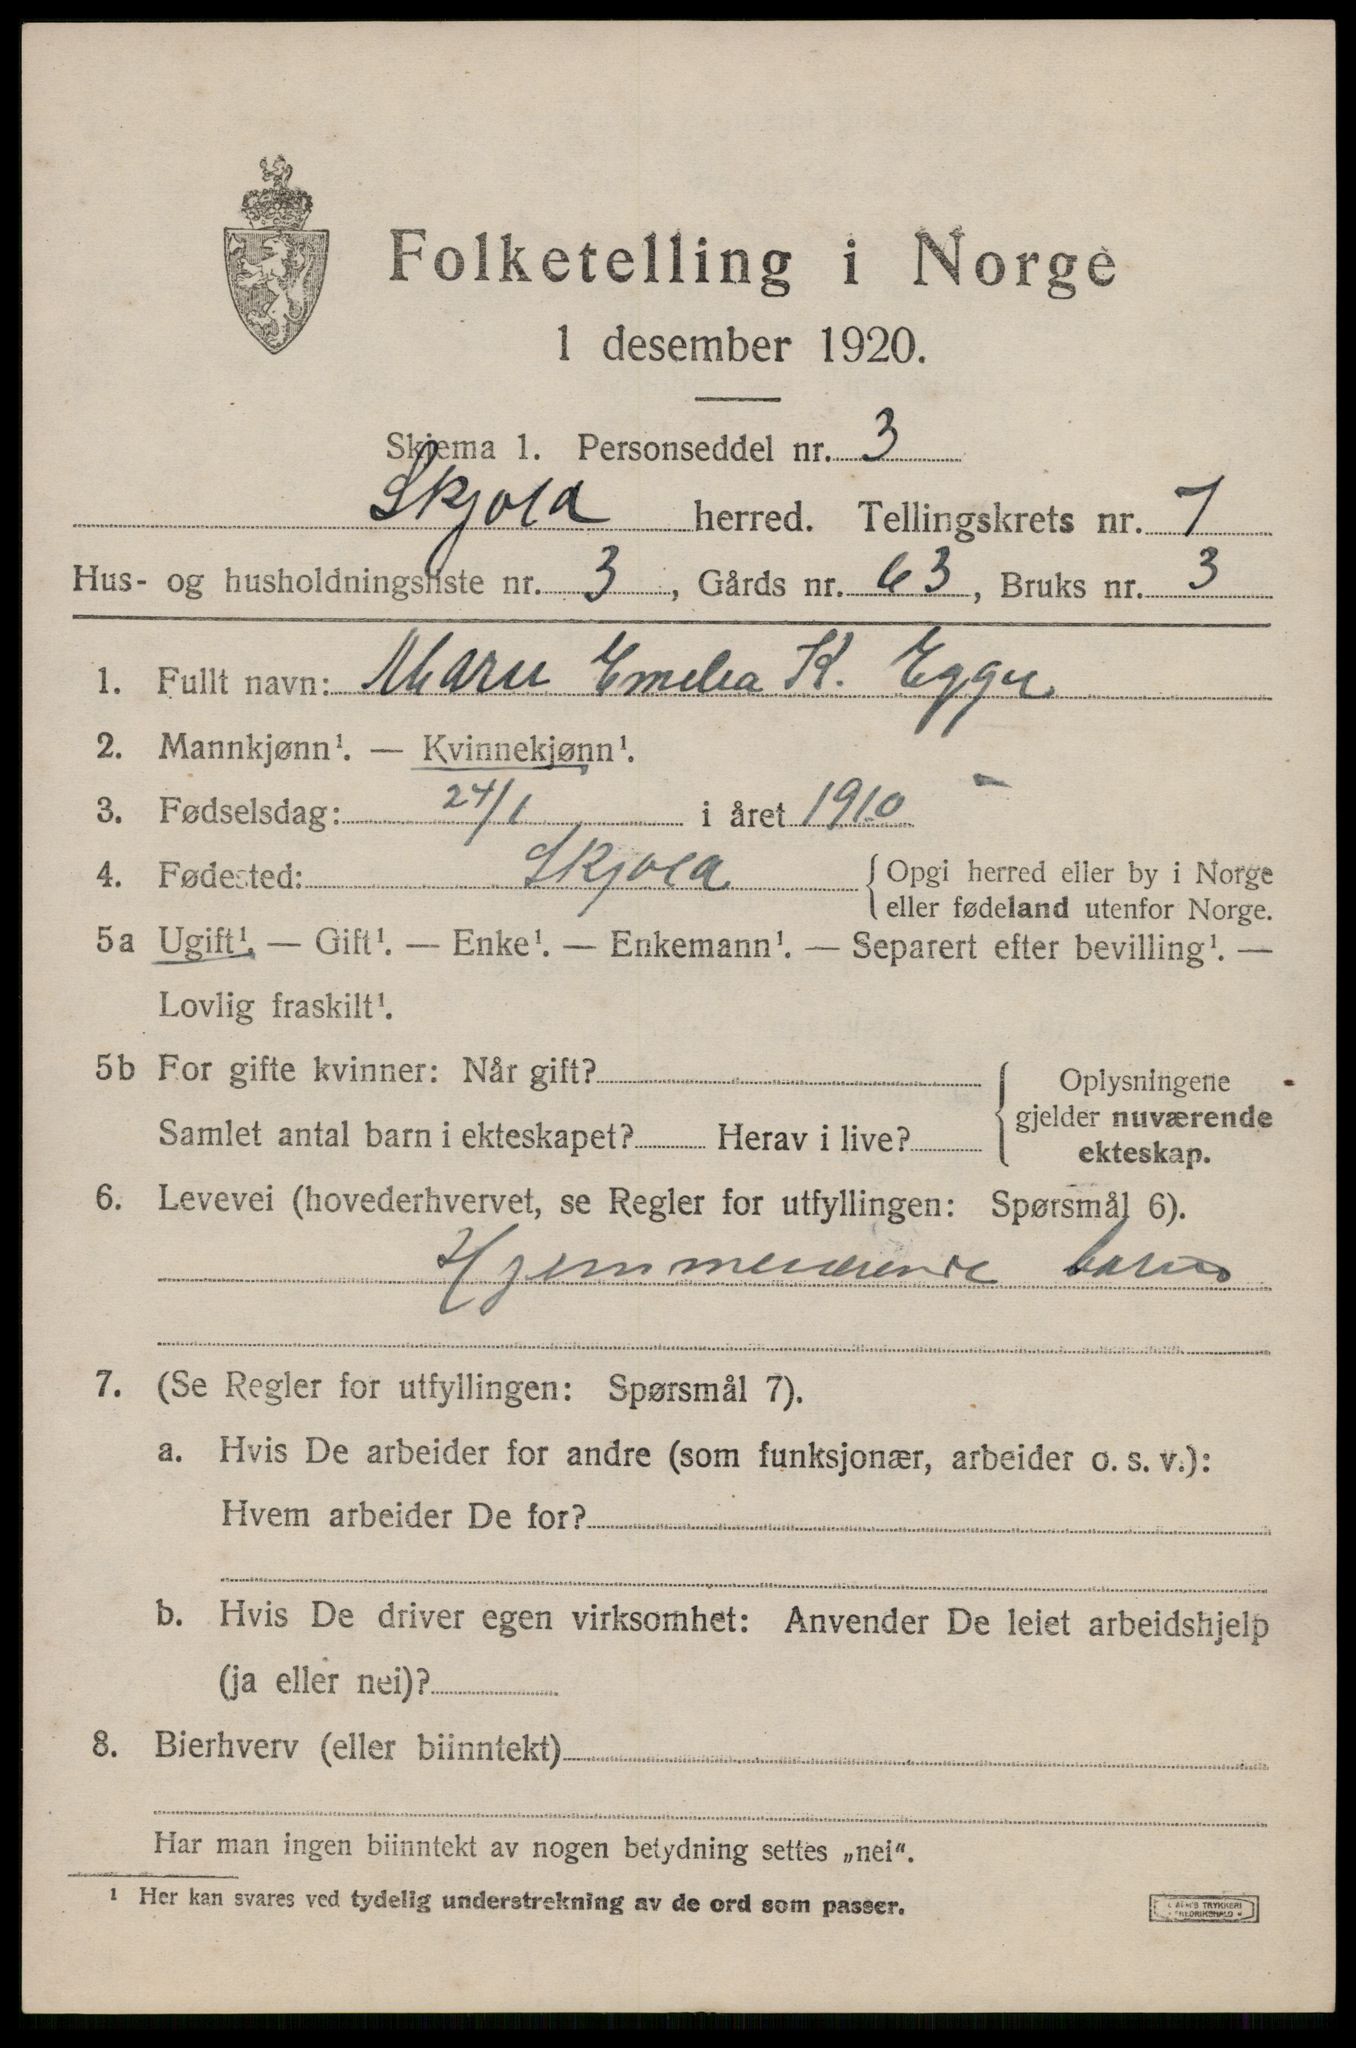 Folketelling i Norge
1 desember 1920.
Skjema 1. Personseddel nr. 3
Skjold herred. Tellingskrets nr. 7
Hus- og husholdningsliste nr. 3, Gårds nr. 63, Bruks nr. 3
1. Fullt navn: Marie Emelia K. Egge
2. Mannkjønn¹. — Kvinnekjønn¹.
3. Fødselsdag: 24/1 i året 1910
4. Fødested: Skjold { Opgi herred eller by i Norge
eller fødeland utenfor Norge.
5a Ugift¹. — Gift¹. — Enke¹. — Enkemann¹. — Separert efter bevilling¹. —
Lovlig fraskilt¹.
5b For gifte kvinner: Når gift? { Oplysningene
gjelder nuværende
Samlet antal barn i ekteskapet? Herav i live?
ekteskap.
6. Levevei (hovederhvervet, se Regler for utfyllingen: Spørsmål 6).
Hjemmeværende barn
7. (Se Regler for utfyllingen: Spørsmål 7).
a. Hvis De arbeider for andre (som funksjonær, arbeider o. s. v.):
Hvem arbeider De for?
b. Hvis De driver egen virksomhet: Anvender De leiet arbeidshjelp
(ja eller nei)?
8. Bierhverv (eller biinntekt)
Har man ingen biinntekt av nogen betydning settes „nei“.
¹ Her kan svares ved tydelig understrekning av de ord som passer.
TRYKKERI